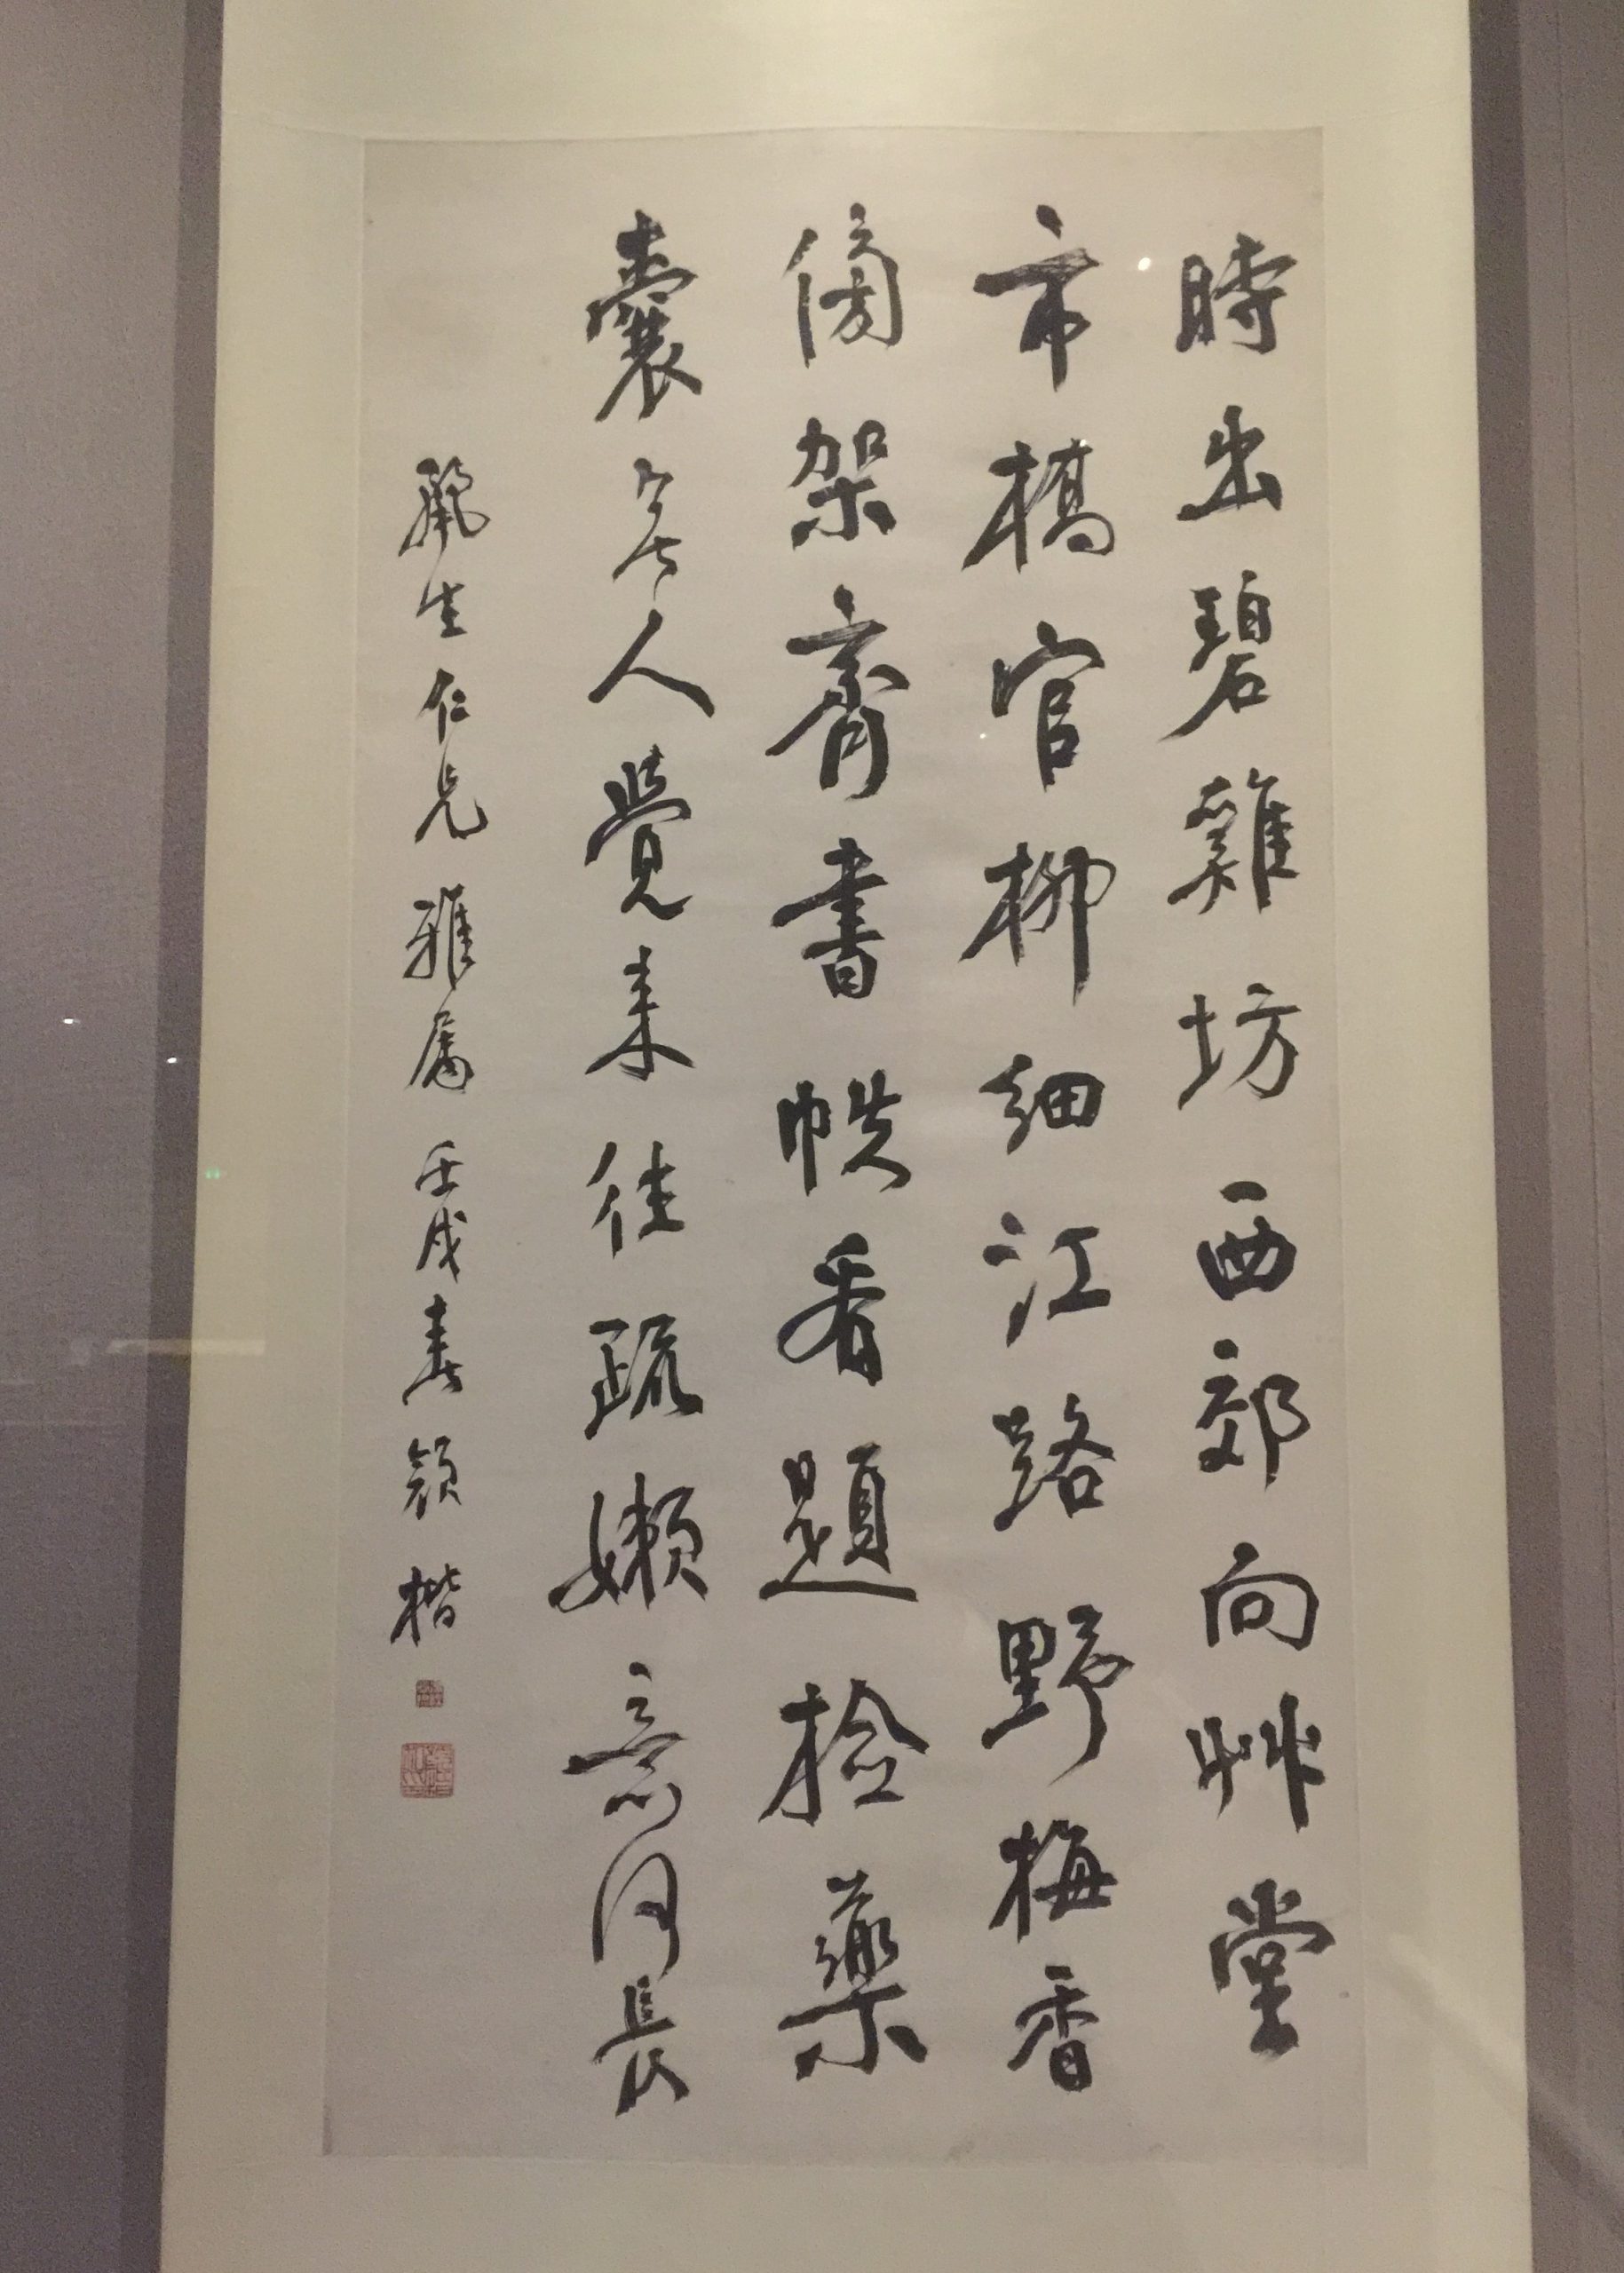 時出碧雞坊西郊向艸堂
市橋官柳細江路野梅香
傍架齊書帙看題撿藥
囊無人覺來往疏嬾意何長
生仁兄雅屬壬戌春領楷